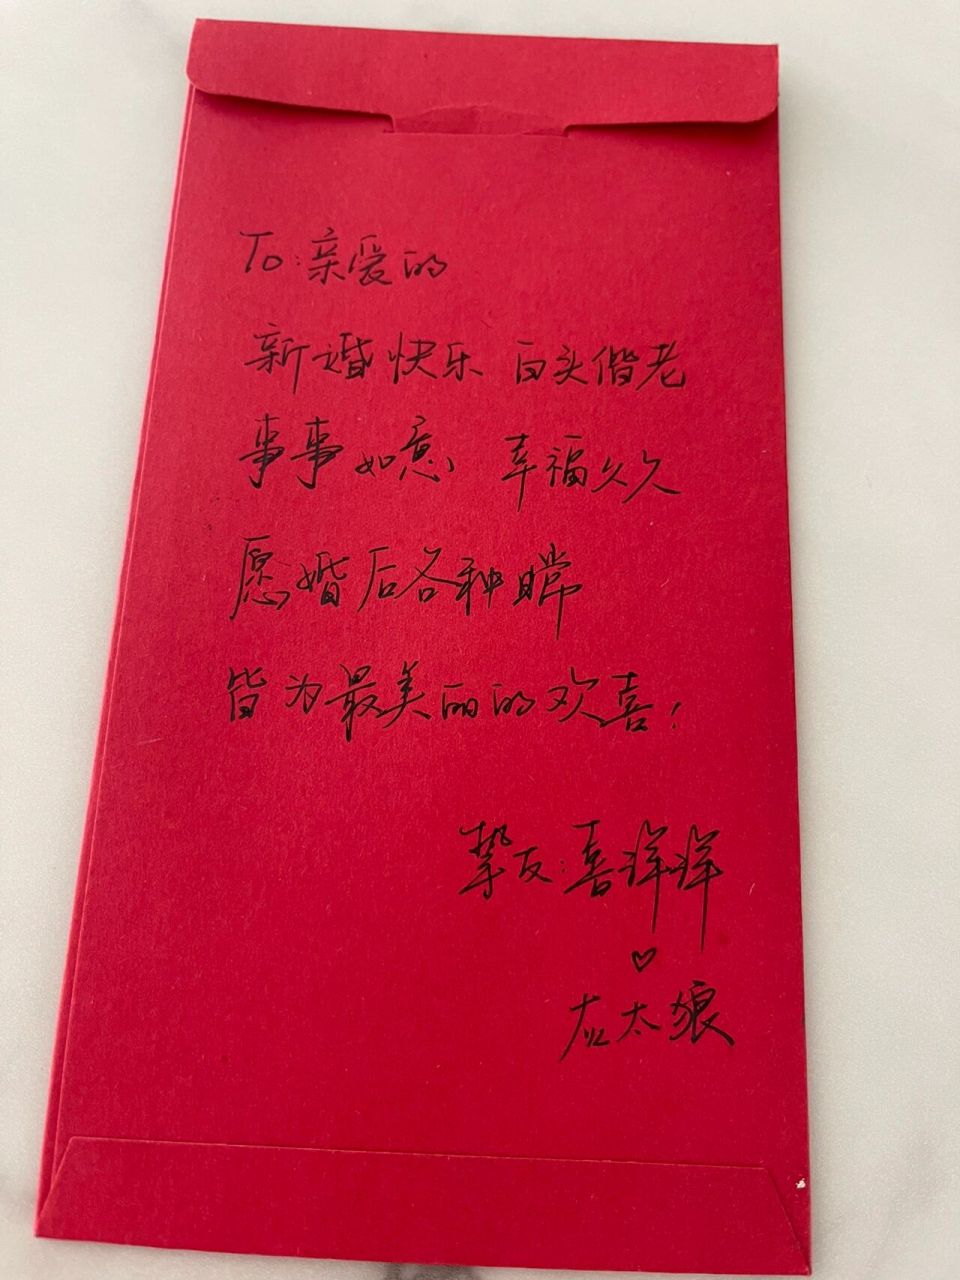 To:亲爱的
新婚快乐 白头偕老
事事如意 幸福久久
愿婚后各种嚐
皆为最美丽的欢喜!
挚友:喜洋洋
♡
太狼